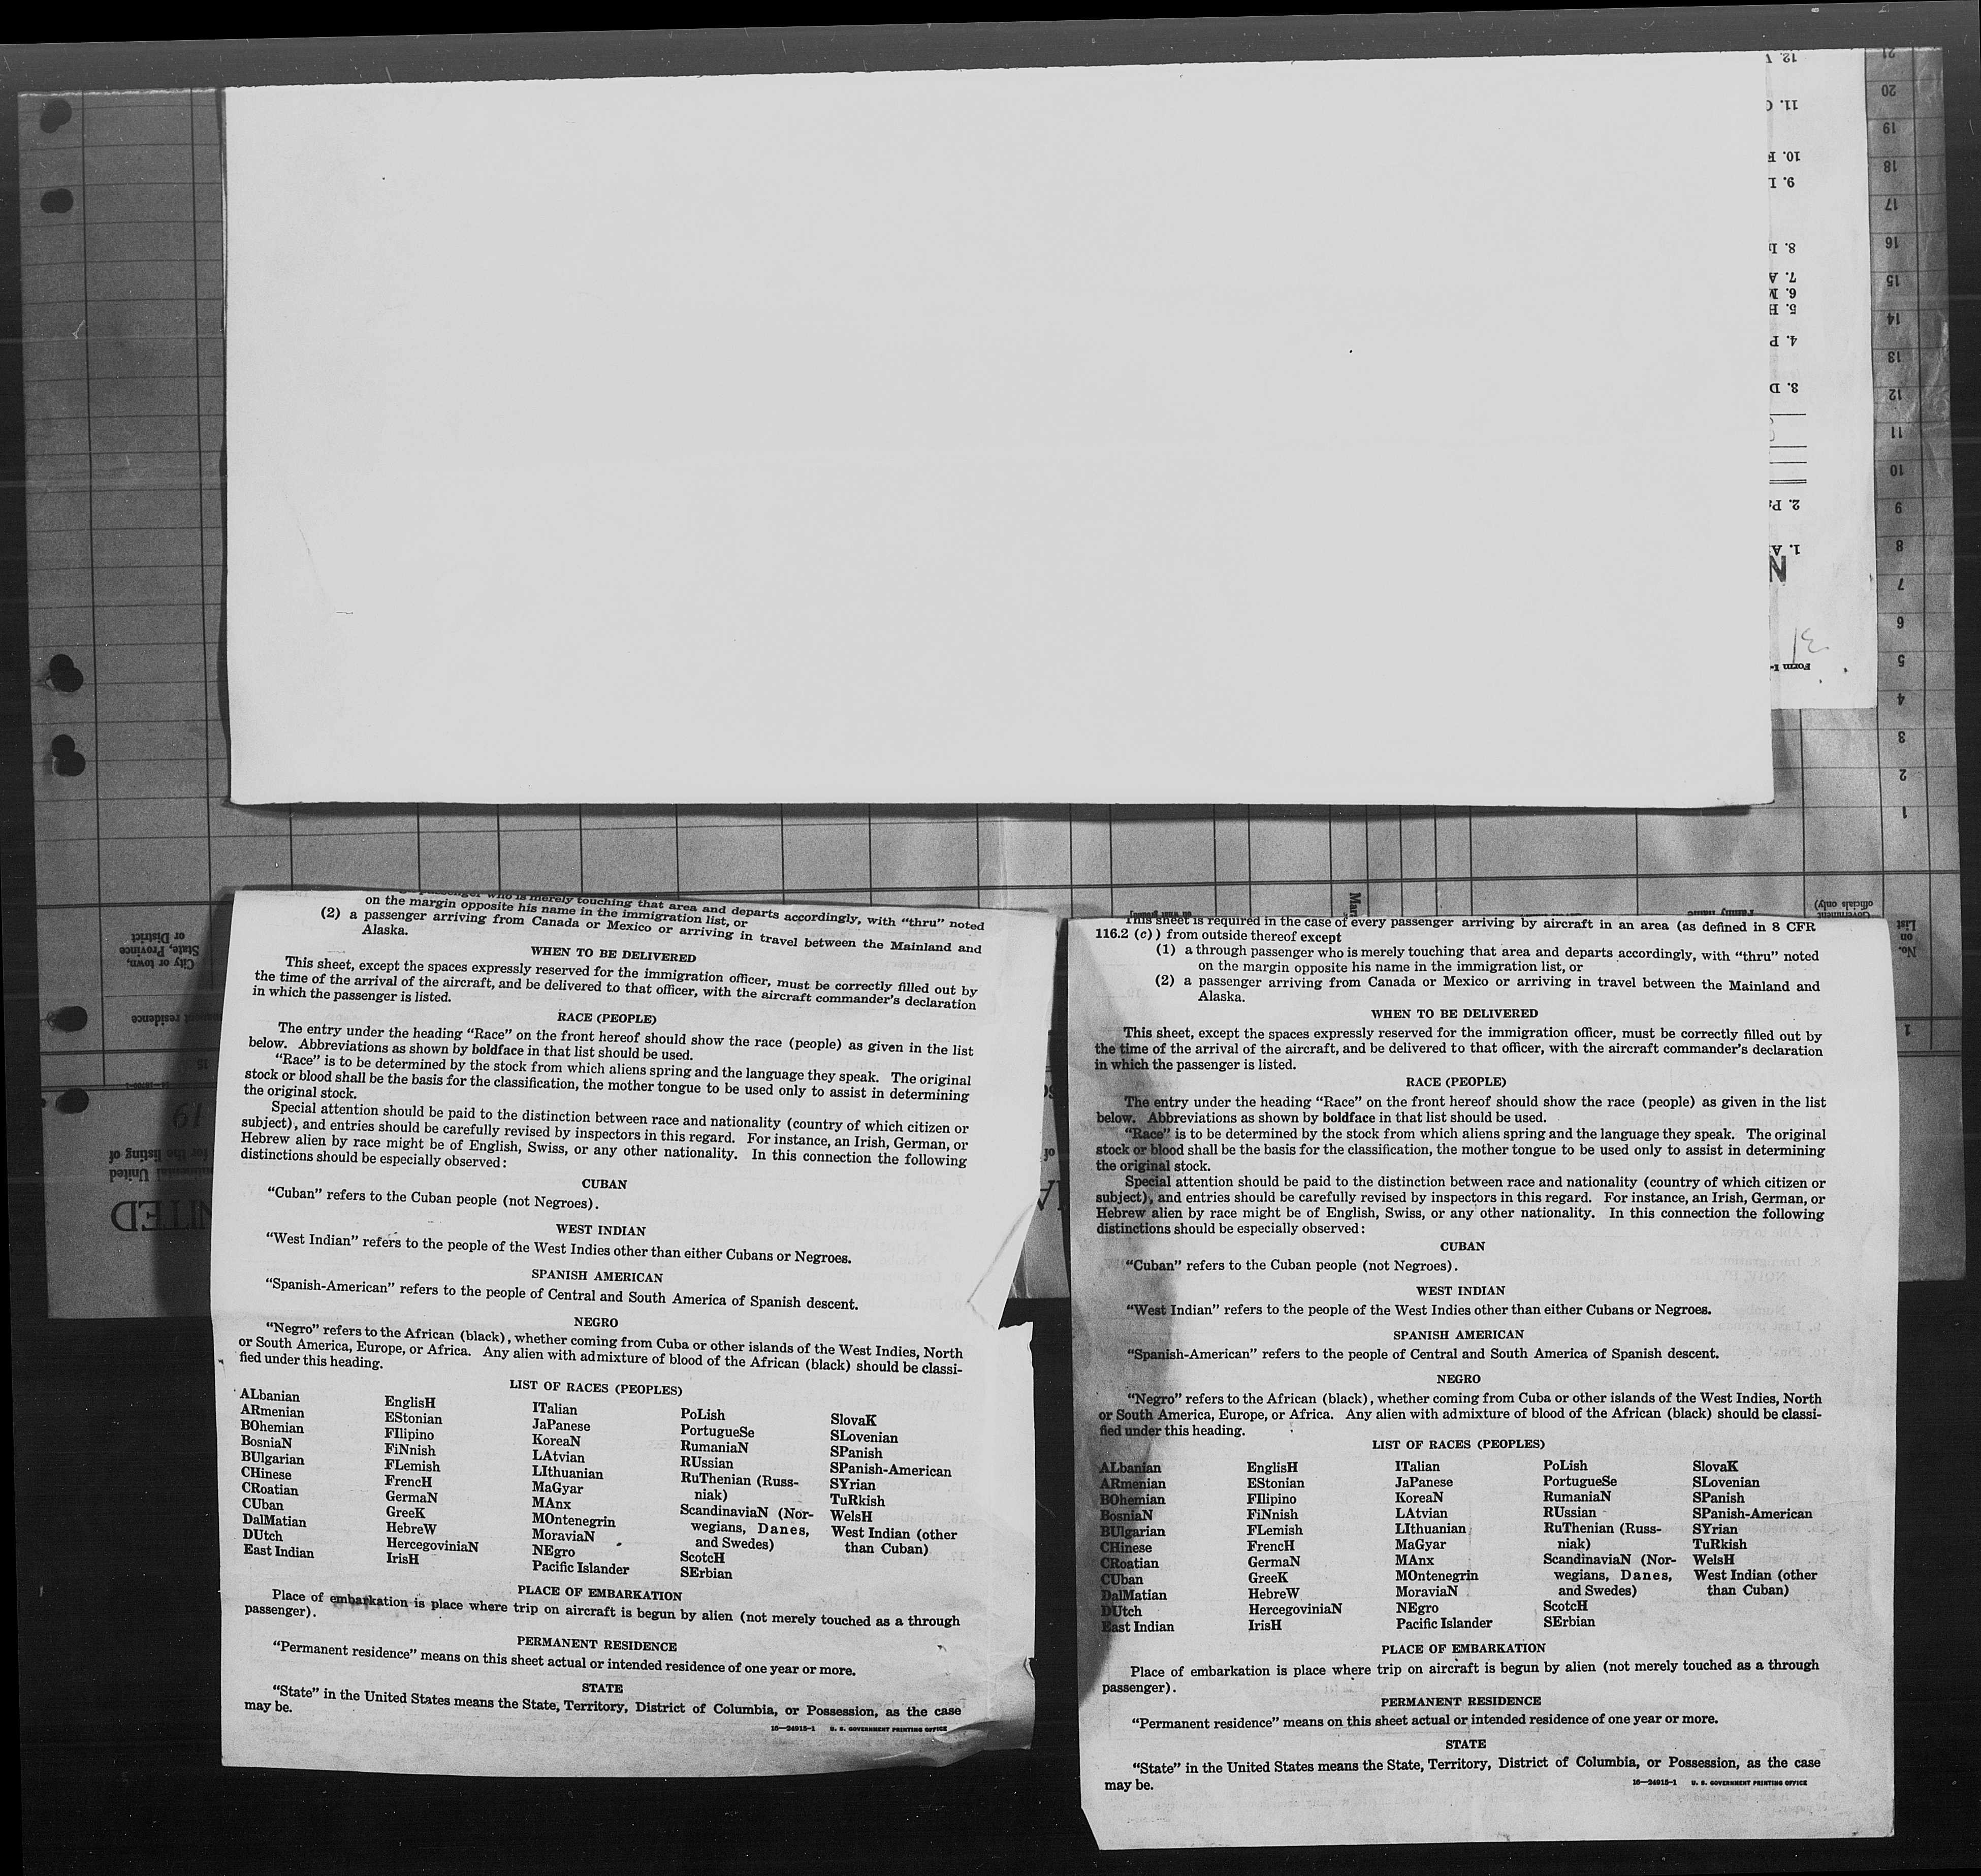 12.
11.
10.
9.
8.
7. A
6. M
5. H
4. P
3. D
2. Pa
1. A
N
Form I-
21
20
19
18
17
16
15
14
13
12
11
10
9
8
7
6
5
4
3
2
1
No.
on
List
Government
officials only)
Family name
Mari
1
City or town,
State, Province
or District
residence
15
19
for the listing of
United
NITED
of
on the margin opposite his name in the immigration list, or
(2) a passenger arriving from Canada or Mexico or arriving in travel between the Mainland and
Alaska.
WHEN TO BE DELIVERED
This sheet, except the spaces expressly reserved for the immigration officer, must be correctly filled out by
the time of the arrival of the aircraft, and be delivered to that officer, with the aircraft commander's declaration
in which the passenger is listed.
RACE (PEOPLE)
The entry under the heading “Race” on the front hereof should show the race (people) as given in the list
below. Abbreviations as shown by boldface in that list should be used.
“Race” is to be determined by the stock from which aliens spring and the language they speak. The original
stock or blood shall be the basis for the classification, the mother tongue to be used only to assist in determining
the original stock.
Special attention should be paid to the distinction between race and nationality (country of which citizen or
subject), and entries should be carefully revised by inspectors in this regard. For instance, an Irish, German, or
Hebrew alien by race might be of English, Swiss, or any other nationality. In this connection the following
distinctions should be especially observed:
CUBAN
“Cuban” refers to the Cuban people (not Negroes).
WEST INDIAN
“West Indian” refers to the people of the West Indies other than either Cubans or Negroes.
SPANISH AMERICAN
“Spanish-American” refers to the people of Central and South America of Spanish descent.
NEGRO
“Negro” refers to the African (black), whether coming from Cuba or other islands of the West Indies, North
or South America, Europe, or Africa. Any alien with admixture of blood of the African (black) should be classi-
fied under this heading.
LIST OF RACES (PEOPLES)
ALbanian
ARmenian
BOhemian
BosniaN
BUlgarian
CHinese
CRoatian
CUban
DalMatian
DUtch
East Indian
EnglisH
EStonian
FIlipino
FiNnish
FLemish
FrencH
GermaN
GreeK
HebreW
HercegoviniaN
IrisH
ITalian
JaPanese
KoreaN
LAtvian
LIthuanian
MaGyar
MAnx
MOntenegrin
MoraviaN
NEgro
Pacific Islander
PoLish
PortugueSe
RumaniaN
RUssian
RuThenian (Russ-
niak)
ScandinaviaN (Nor-
wegians, Danes,
and Swedes)
ScotcH
SErbian
SlovaK
SLovenian
SPanish
SPanish-American
SYrian
TuRkish
WelsH
West Indian (other
than Cuban)
PLACE OF EMBARKATION
Place of embarkation is place where trip on aircraft is begun by alien (not merely touched as a through
passenger).
PERMANENT RESIDENCE
“Permanent residence” means on this sheet actual or intended residence of one year or more.
STATE
“State” in the United States means the State, Territory, District of Columbia, or Possession, as the case
may be.
16—24915-1 U. S. GOVERNMENT PRINTING OFFICE
This sheet is required in the case of every passenger arriving by aircraft in an area (as defined in 8 CFR
116.2 (c)) from outside thereof except
(1) a through passenger who is merely touching that area and departs accordingly, with “thru” noted
on the margin opposite his name in the immigration list, or
(2) a passenger arriving from Canada or Mexico or arriving in travel between the Mainland and
Alaska.
WHEN TO BE DELIVERED
This sheet, except the spaces expressly reserved for the immigration officer, must be correctly filled out by
the time of the arrival of the aircraft, and be delivered to that officer, with the aircraft commander's declaration
in which the passenger is listed.
RACE (PEOPLE)
The entry under the heading “Race” on the front hereof should show the race (people) as given in the list
below. Abbreviations as shown by boldface in that list should be used.
“Race” is to be determined by the stock from which aliens spring and the language they speak. The original
stock or blood shall be the basis for the classification, the mother tongue to be used only to assist in determining
the original stock.
Special attention should be paid to the distinction between race and nationality (country of which citizen or
subject), and entries should be carefully revised by inspectors in this regard. For instance, an Irish, German, or
Hebrew alien by race might be of English, Swiss, or any other nationality. In this connection the following
distinctions should be especially observed:
CUBAN
“Cuban” refers to the Cuban people (not Negroes).
WEST INDIAN
“West Indian” refers to the people of the West Indies other than either Cubans or Negroes.
SPANISH AMERICAN
“Spanish-American” refers to the people of Central and South America of Spanish descent.
NEGRO
“Negro” refers to the African (black), whether coming from Cuba or other islands of the West Indies, North
or South America, Europe, or Africa. Any alien with admixture of blood of the African (black) should be classi-
fied under this heading.
LIST OF RACES (PEOPLES)
ALbanian
ARmenian
BOhemian
BosniaN
BUlgarian
CHinese
CRoatian
CUban
DalMatian
DUtch
East Indian
EnglisH
EStonian
FIlipino
FiNnish
FLemish
FrencH
GermaN
GreeK
HebreW
HercegoviniaN
IrisH
ITalian
JaPanese
KoreaN
LAtvian
LIthuanian
MaGyar
MAnx
MOntenegrin
MoraviaN
NEgro
Pacific Islander
PoLish
PortugueSe
RumaniaN
RUssian
RuThenian (Russ-
niak)
ScandinaviaN (Nor-
wegians, Danes,
and Swedes)
ScotcH
SErbian
SlovaK
SLovenian
SPanish
SPanish-American
SYrian
TuRkish
WelsH
West Indian (other
than Cuban)
PLACE OF EMBARKATION
Place of embarkation is place where trip on aircraft is begun by alien (not merely touched as a through
passenger).
PERMANENT RESIDENCE
“Permanent residence” means on this sheet actual or intended residence of one year or more.
STATE
“State” in the United States means the State, Territory, District of Columbia, or Possession, as the case
may be.
16—24915-1 U. S. GOVERNMENT PRINTING OFFICE